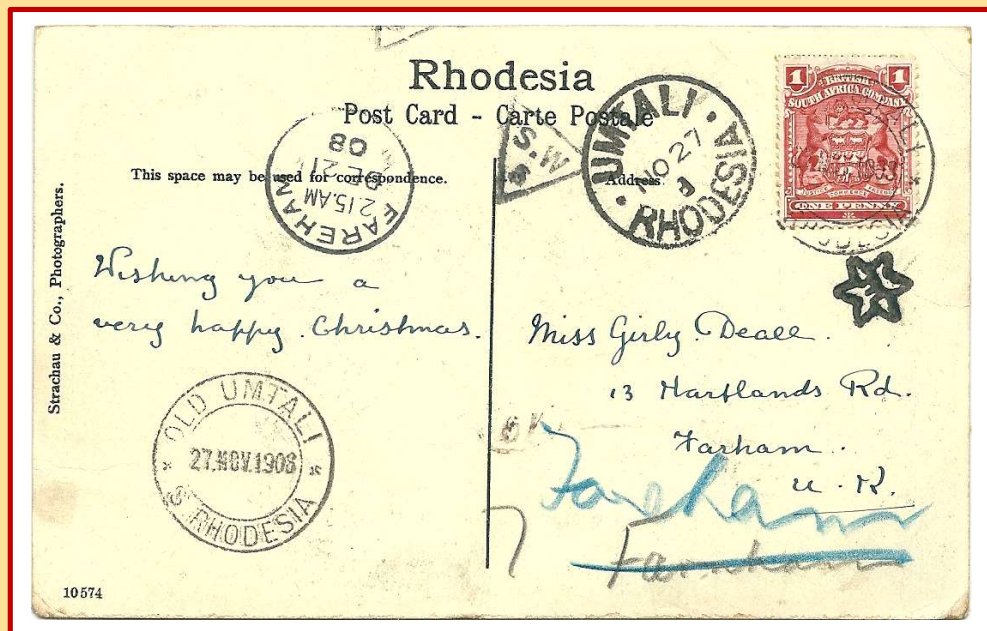 Rhodesia
Post Card - Carte Postale
This space may be used for correspondence.
Address.
Strachau & Co., Photographers.
FAREHAM
2.15.AM
DE 21
08
S.W
UMTALI · RHODESIA
NO 27
1
BRITISH
SOUTH AFRICA COMPANY
1
1
JUSTICE COMMERCE FREEDOM
ONE PENNY
Wishing you a
very happy Christmas.
OLD UMTALI
27.NOV.1908
S. RHODESIA
Miss Girly Deall.
13 Hartlands Rd.
Farham.
U.K.
Fareham
Farnham
10574